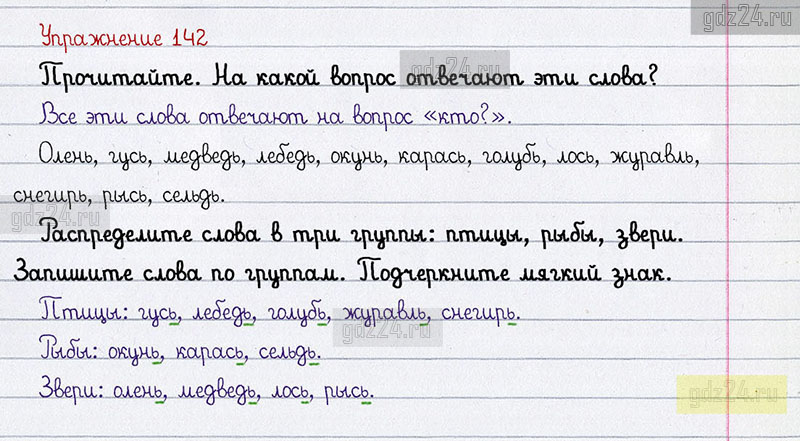 gdz24.ru
Упражнение 142
gdz24.ru
Прочитайте. На какой вопрос отвечают эти слова?
Все эти слова отвечают на вопрос «кто?».
Олень, гусь, медведь, лебедь, окунь, карась, голубь, лось, журавль,
снегирь, рысь, сельдь.
gdz24.ru
Распределите слова в три группы: птицы, рыбы, звери.
Запишите слова по группам. Подчеркните мягкий знак.
Птицы: гусь, лебедь, голубь, журавль, снегирь.
gdz24.ru
Рыбы: окунь, карась, сельдь.
Звери: олень, медведь, лось, рысь.
gdz24.ru